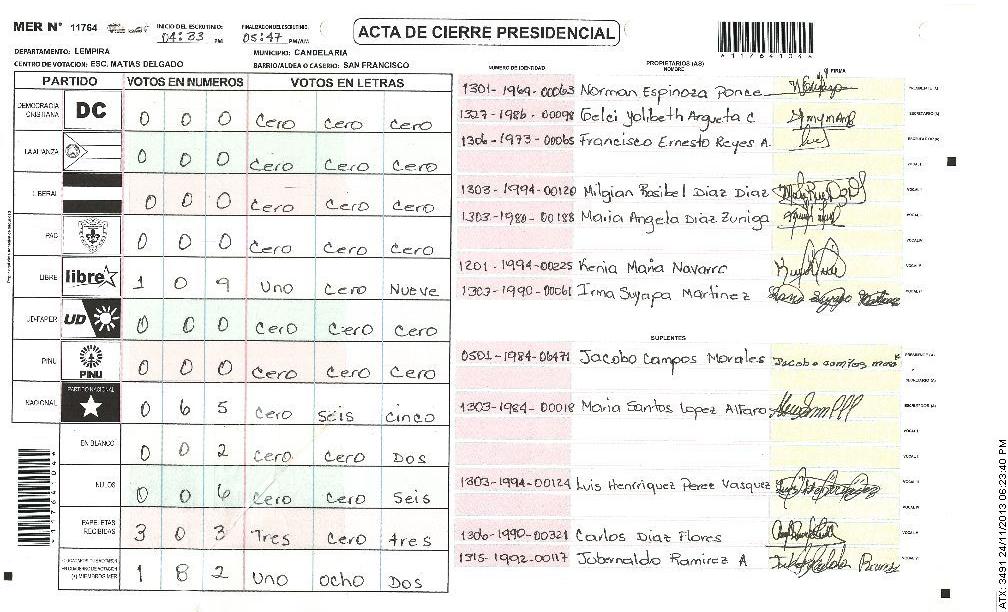 MER N° 11764 INICIO DEL ESCRUTINIO: 04:33 PM FINALIZACION DEL ESCRUTINIO: 05:47 PM/AM ACTA DE CIERRE PRESIDENCIAL
DEPARTAMENTO: LEMPIRA MUNICIPIO: CANDELARIA
CENTRO DE VOTACION: ESC. MATIAS DELGADO BARRIO/ALDEA O CASERIO: SAN FRANCISCO
PARTIDO VOTOS EN NUMEROS VOTOS EN LETRAS
DEMOCRACIA CRISTIANA DC 0 0 0 Cero Cero Cero
LA ALIANZA 0 0 0 Cero Cero Cero
LIBERAL 0 0 0 Cero Cero Cero
PAC 0 0 0 Cero Cero Cero
LIBRE libre 1 0 9 Uno Cero Nueve
UD-FAPER UD 0 0 0 Cero Cero Cero
PINU PINU 0 0 0 Cero Cero Cero
NACIONAL PARTIDO NACIONAL 0 6 5 Cero Seis Cinco
EN BLANCO 0 0 2 Cero Cero Dos
NULOS 0 0 6 Cero Cero Seis
PAPELETAS RECIBIDAS 3 0 3 Tres Cero tres
(+) MIEMBROS MER 1 8 2 Uno ocho Dos
NUMERO DE IDENTIDAD PROPIETARIOS (AS) NOMBRE FIRMA
1301-1969-00063 Norman Espinoza Ponce PRESIDENTE (A)
1327-1986-00098 Gelci Yolibeth Argueta C SECRETARIO (A)
1306-1973-00065 Francisco Ernesto Reyes A. ESCRUTADOR (A)
VOCAL I
1303-1994-00120 Milgian Rosibel Diaz Diaz VOCAL II
1303-1980-00188 Maria Angela Diaz Zuniga VOCAL III
1201-1994-00225 Kenia Maria Navarro
1303-1990-00061 Irma Suyapa Martinez
SUPLENTES
0501-1984-06471 Jacobo Campos Morales PRESIDENTE (A)
SECRETARIO (A)
1303-1984-00018 Maria Santos Lopez Alfaro ESCRUTADOR (A)
VOCAL I
1303-1994-00124 Luis Henrriquez Perez Vasquez
1306-1990-00321 Carlos Diaz Flores
1315-1992-00117 Jobernaldo Ramirez A
ATX: 3491 24/11/2013 06:23:40 PM